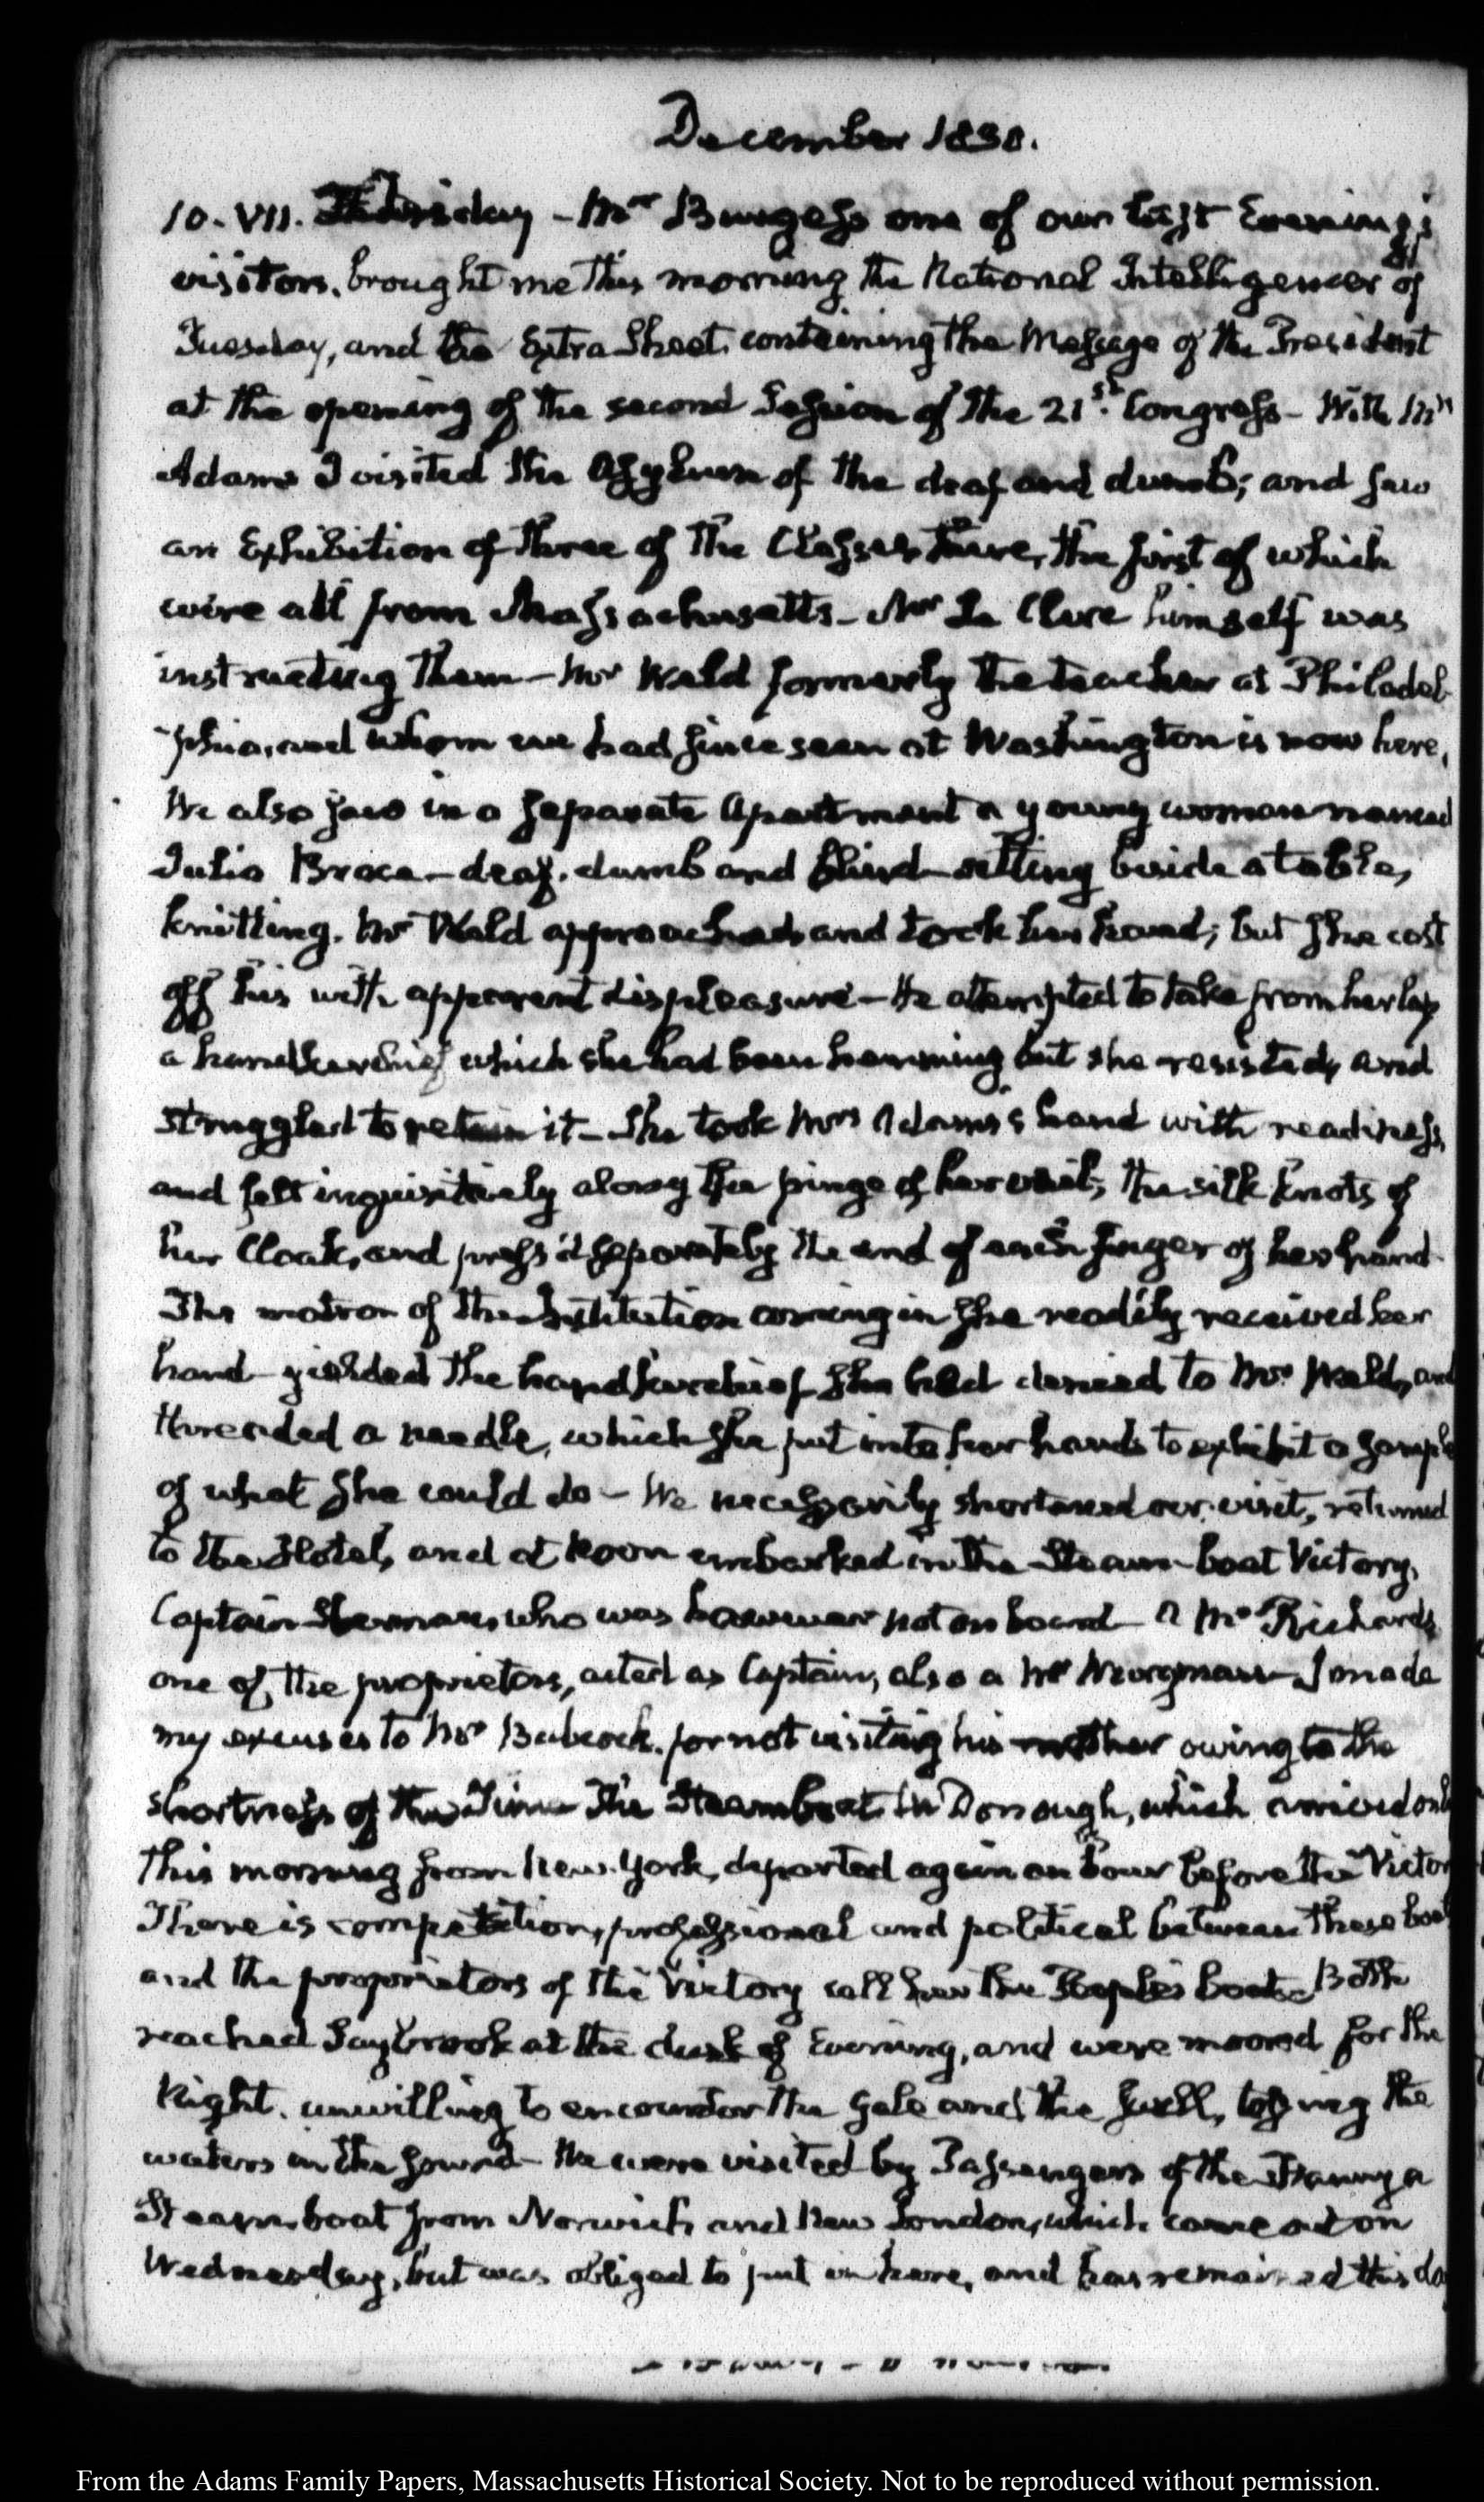 December 1830.
10. VII. Friday - Mr Burgess one of our last Evening's
visitors, brought me this morning the National Intelligencer of
Tuesday, and the Extra Sheet, containing the Message of the President
at the opening of the second Session of the 21st. Congress - With Mrs
Adams I visited the Asylum of the deaf and dumb; and saw
an Exhibition of three of the Classes there, the first of which
were all from Massachusetts - Mr Le Clerc himself was
instructing them - Mr Weld formerly the teacher at Philadel-
phia, and whom we had since seen at Washington is now here,
We also saw in a separate Apartment a young woman named
Julia Brace - deaf, dumb and blind - sitting beside a table,
knitting. Mr Weld approached and took her hand; but she cast
off his with apparent displeasure - He attempted to take from her lap
a handkerchief which she had been hemming but she resisted, and
struggled to retain it - She took Mrs Adams's hand with readiness,
and felt inquisitively along the fringe of her veil, the silk knots of
her Cloak, and press'd separately the end of each finger of her hand
The matron of the Institution coming in she readily received her
hand - yielded the handkerchief she had denied to Mr Weld, and
threaded a needle, which she put into her hands to exhibit a sample
of what she could do - We necessarily shortened our visit, returned
to the Hotel, and at Noon embarked in the Steam-boat Victory,
Captain who was however not on board - A Mr Richards,
one of the proprietors, acted as Captain, also a Mr - I made
my excuses to Mr Babcock, for not visiting his mother owing to the
shortness of the Time - The Steamboat McDonough, which arrived only
this morning from New-York, departed again an hour before the Victory
There is competition, professional and political between these boats
and the proprietors of the Victory call her the People's boat - Both
reached Saybrook at the dusk of Evening, and were moored for the
Night, unwilling to encounter the gale and the swell, tossing the
waters in the Sound - We were visited by Passengers of the Fanny a
Steam-boat from Norwich and New London, which came out on
Wednesday, but was obliged to put in here, and has remained this day
From the Adams Family Papers, Massachusetts Historical Society. Not to be reproduced without permission.